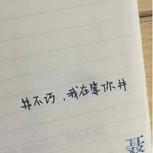 #不巧，我在等你#